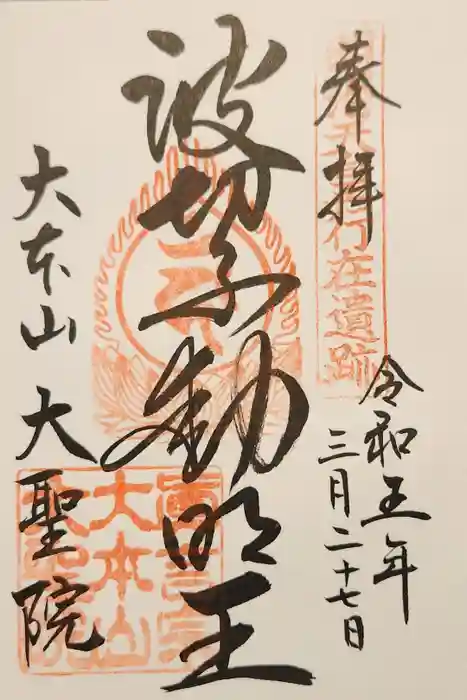 奉拝
行在遺跡
令和五年
三月二十七日
波切不動明王
大本山 大聖院
大本山